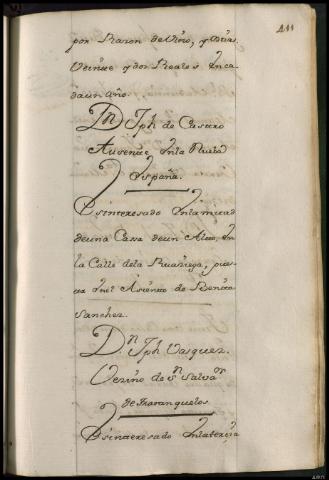 411
por Razon de Vino, y otras
Veinte y dos Reales en ca
da un año.
Dn. Jph de Castro
Ausente en la Nueva
España.
Es interesado en la mitad
de una Casa de un Alto, en
la Calle de la
en el Asiento de Benita
Sanchez.
D.n Jph Vasquez.
Vezino de Sn Salvador
de Franquelos
Es interesado en la tercia